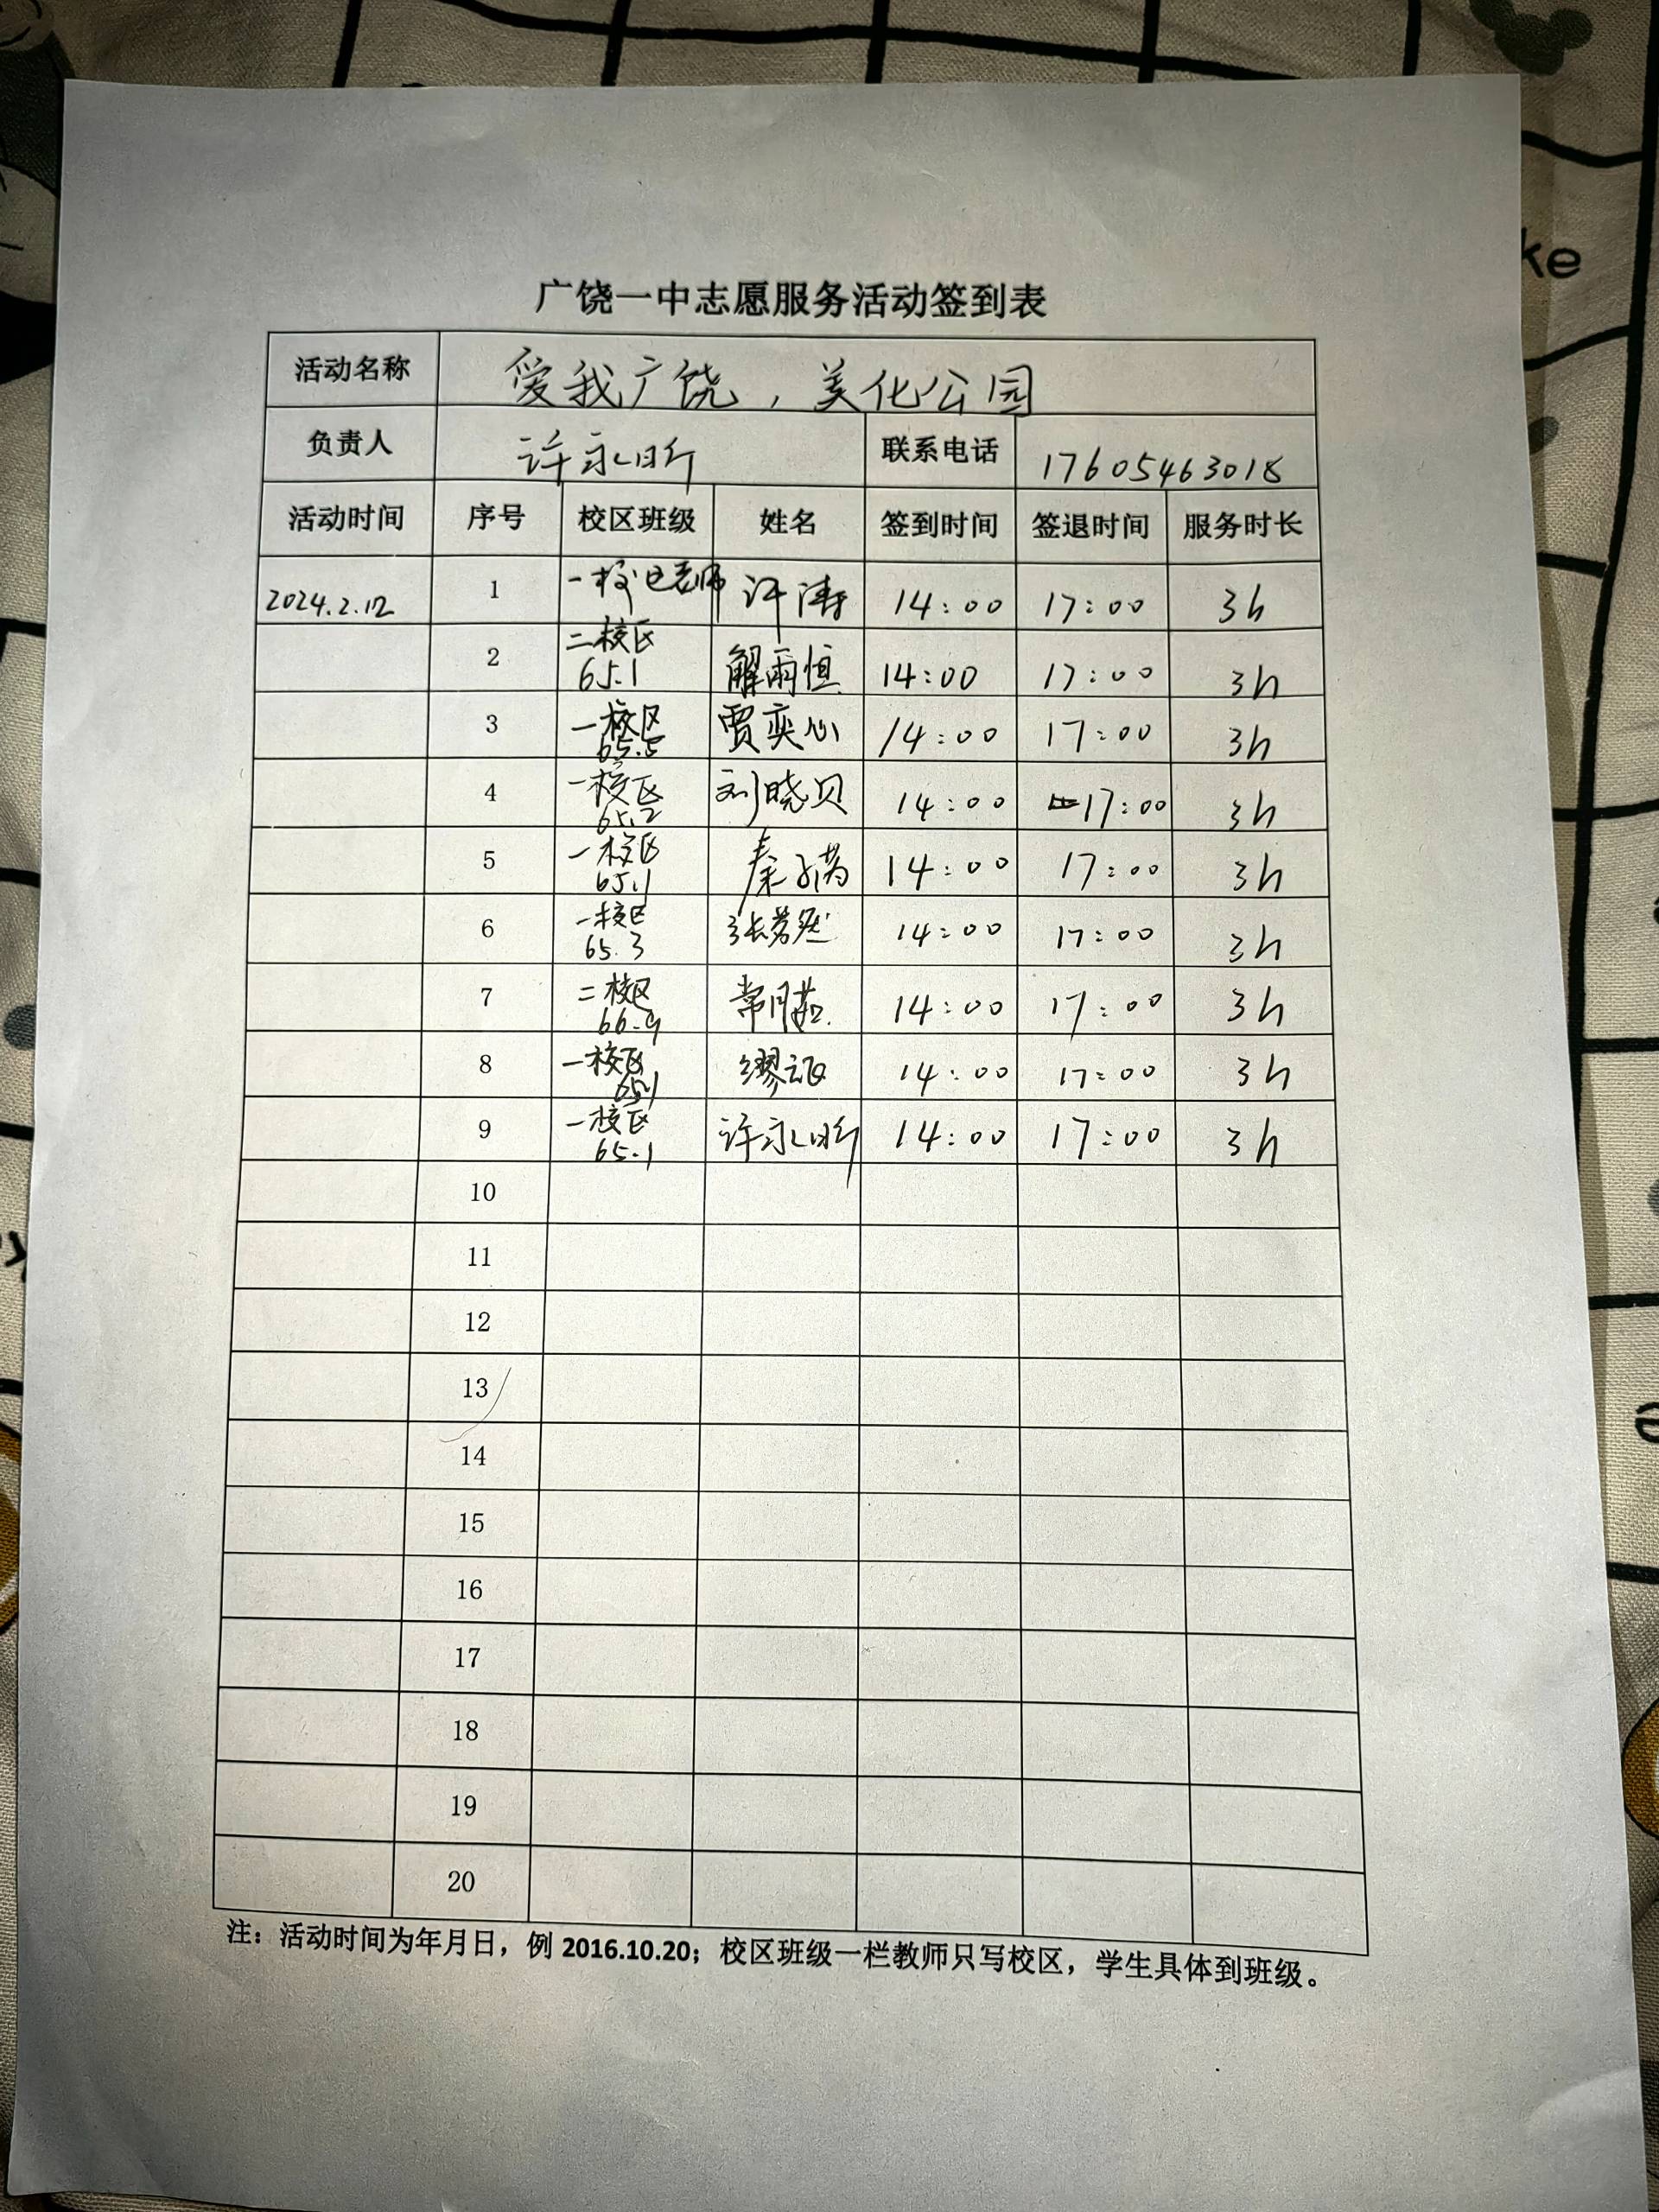 广饶一中志愿服务活动签到表
活动名称 爱我广饶，美化公园
负责人 许永昕 联系电话 17605463018
活动时间 序号 校区班级 姓名 签到时间 签退时间 服务时长
2024.2.12 1 一校区老师 许涛 14:00 17:00 3h
2 二校区 65.1 解雨恒 14:00 17:00 3h
3 一校区 65.5 贾奕心 14:00 17:00 3h
4 一校区 65.2 刘晓贝 14:00 17:00 3h
5 一校区 65.1 秦子满 14:00 17:00 3h
6 一校区 65.3 张若然 14:00 17:00 3h
7 二校区 66.9 常月茹 14:00 17:00 3h
8 一校区 65.1 缪 14:00 17:00 3h
9 一校区 65.1 许永昕 14:00 17:00 3h
10
11
12
13
14
15
16
17
18
19
20
注：活动时间为年月日，例 2016.10.20；校区班级一栏教师只写校区，学生具体到班级。
ke